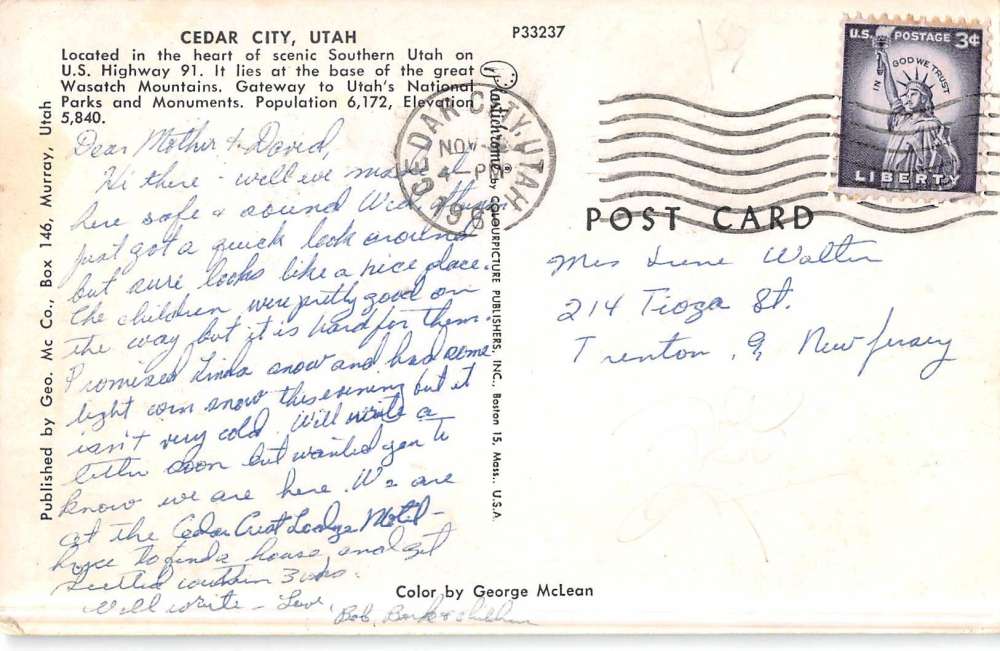 CEDAR CITY, UTAH
Located in the heart of scenic Southern Utah on
U.S. Highway 91. It lies at the base of the great
Wasatch Mountains. Gateway to Utah's National
Parks and Monuments. Population 6,172, Elevation
5,840.
P33237
Published by Geo. Mc Co., Box 146, Murray, Utah
Dear Mother & David,
Hi there - well we made it
here safe & sound Wed.
just got a quick look around
but sure looks like a nice place.
The children were pretty good on
the way but it is hard for them.
Promised Linda snow and had some
light corn snow this evening but it
isn't very cold. Will write a
letter soon but wanted you to
know we are here. We are
at the Cedar Crest Lodge Motel -
hope to find a house and get
settled within 3 wks.
Will write - Love,
Bob, Barb & children
Plastichrome® by COLOURPICTURE PUBLISHERS, INC., Boston 15, Mass., U.S.A.
CEDAR CITY, UTAH
NOV
4 - PM
196
U.S. POSTAGE 3¢
IN GOD WE TRUST
LIBERTY
POST CARD
Mrs Irene Walter
214 Tioga St.
Trenton, 9, New Jersey
Color by George McLean